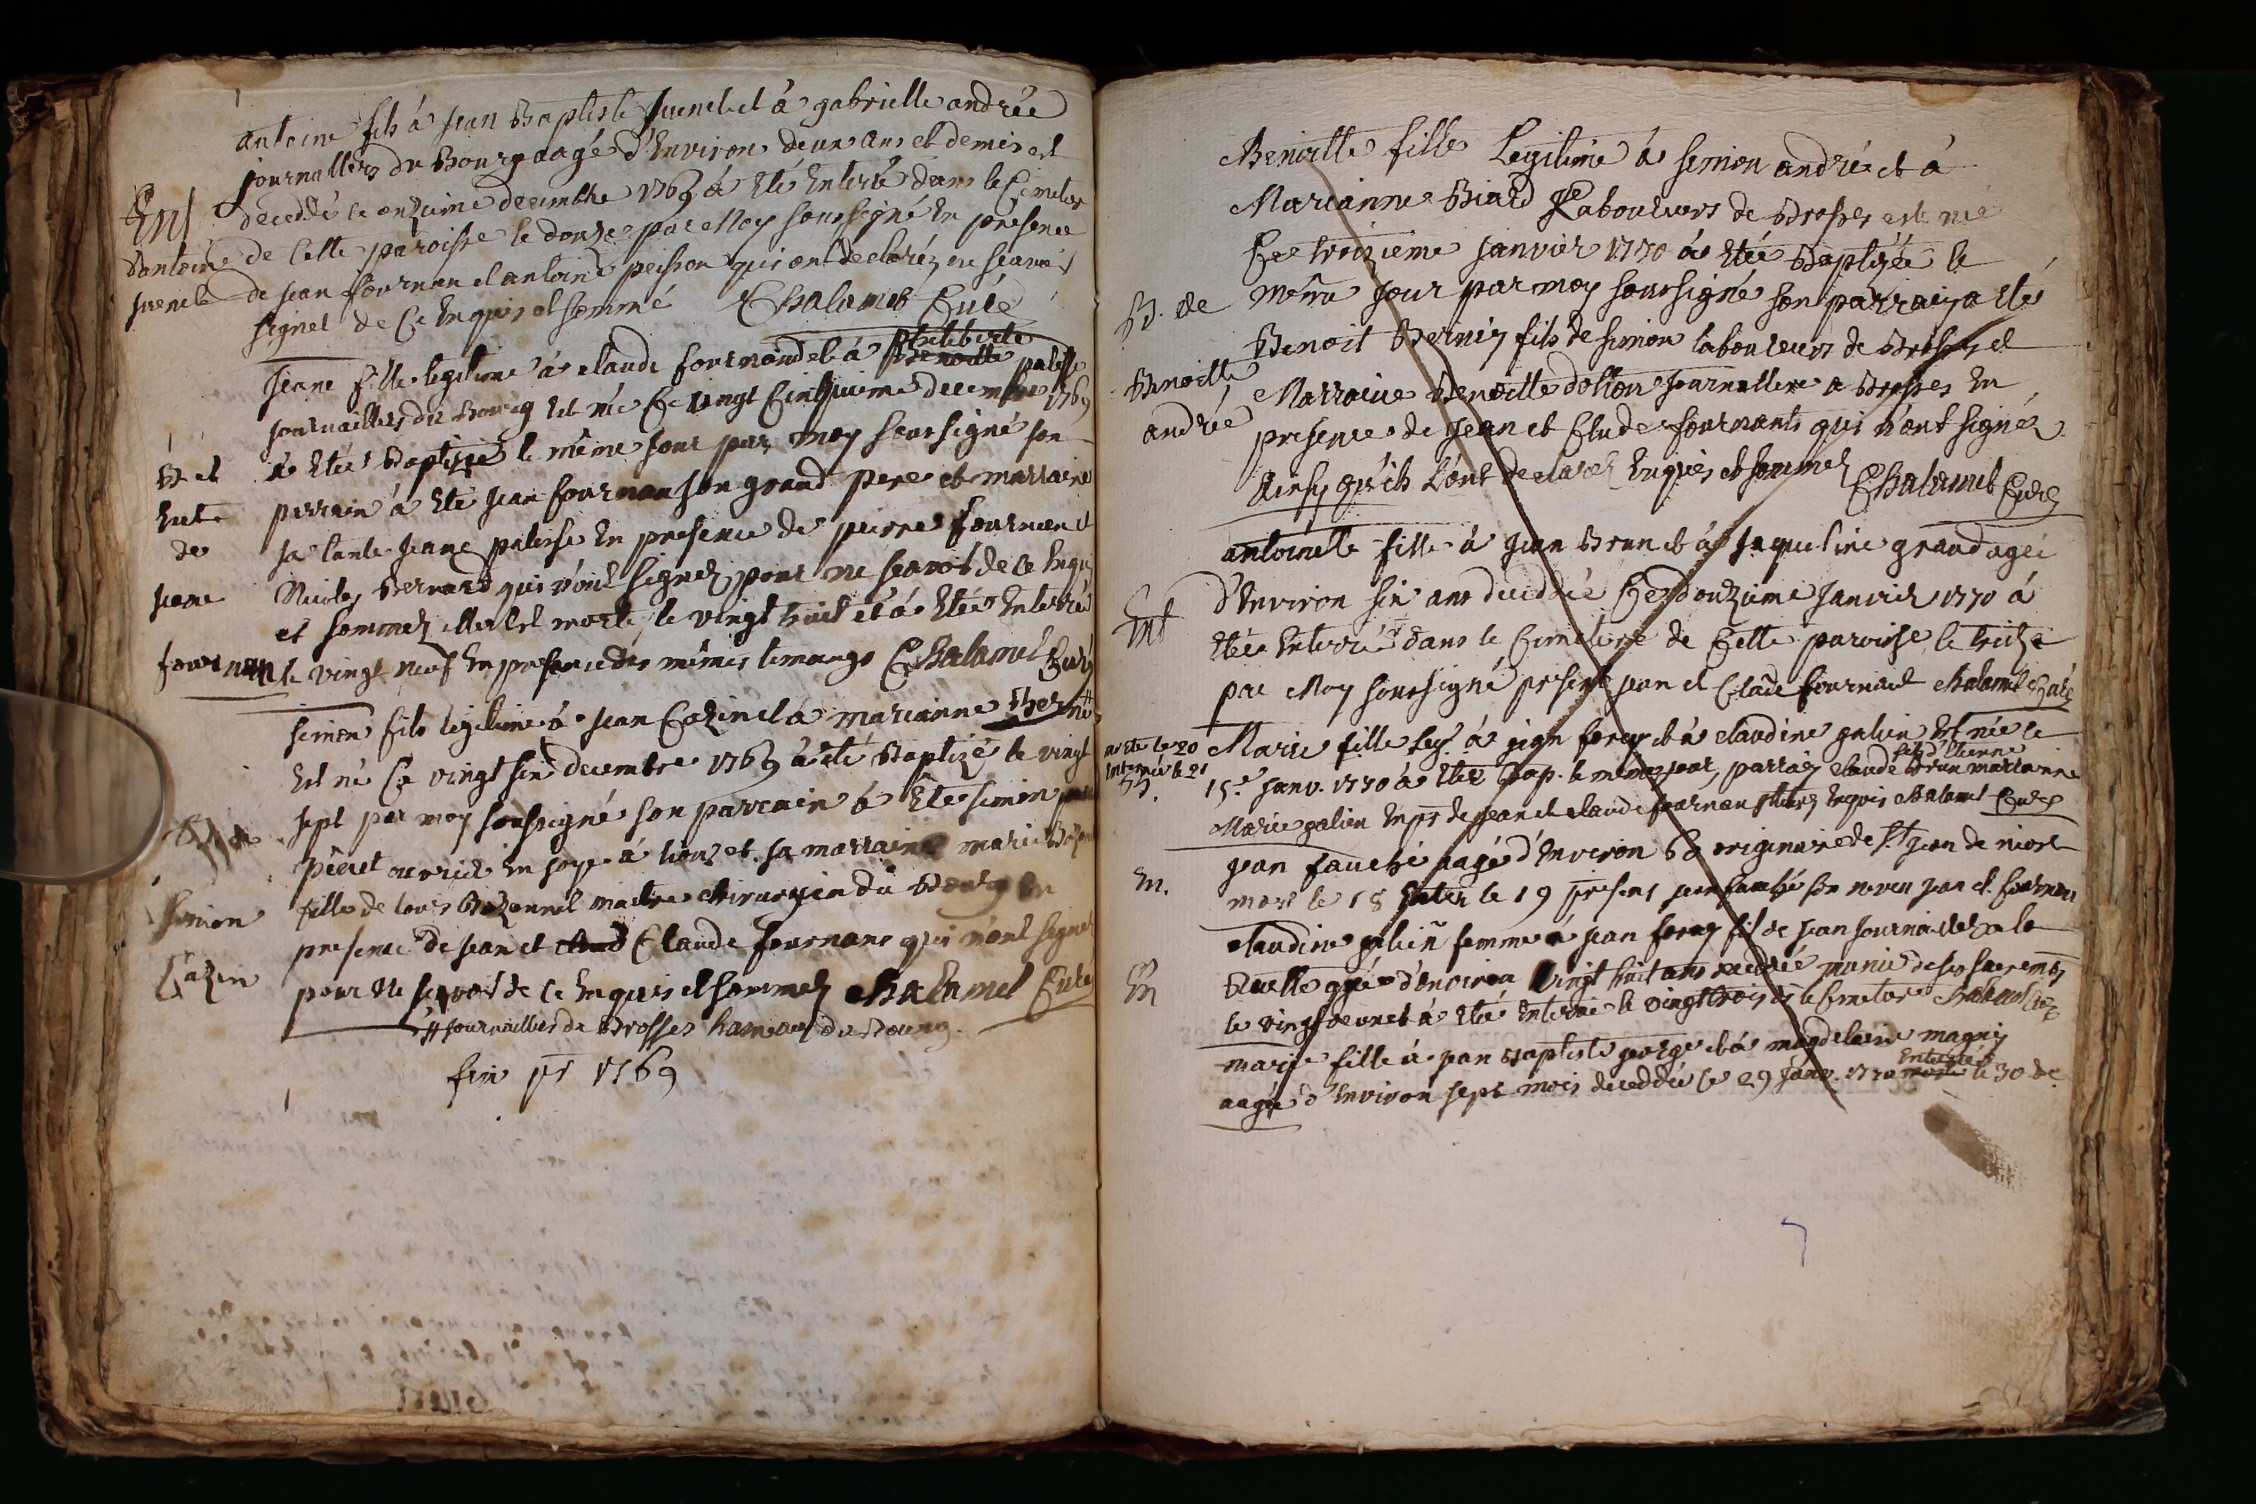 antoine fils à jean Baptiste Juenel et à gabrielle andrée
journalliers du Bourg aagé d'Environ deux ans et demis est
decedde le onzieme decembre 1769 à Eté Enterré dans le Cimetier
Ent de Cette paroisse le donze par Moy soussigné En présence
d'antoine de jean fournan et antoine peisson qui ont declaréz ne scavoir
Juenel signer de Ce Enquis et sommé Chalamel Curé
Jeane fille legitime à claude fournand et à Philiberte palisse
journailliers du Bourg Est née Ce vingt Cinquieme decembre 1769
à Etée Baptisée le même jour par moy soussigné son
B et parrain à Eté Jean fournan son grand pere et marraine
Ente sa tante Jeane palisse En presence de pierre fournan et
de Nicolas Bernard qui n'ont signez pour ne scavoir de ce Enquis
jeane et sommez elle Est morte le vingt huit et à Etée Enterrée
fournan le vingt neuf En presence des mêmes temoings Chalamel Curé
simon fils legitime à jean Cazin et à marianne
Est né Ce vingt six decembre 1769 à été Baptizé le vingt
sept par moy soussigné son parrain à Eté simon
B. de ouvrier En soye à lion et sa marraine marie
simon fille de louis maitre chirurgien du Bourg En
Cazin presence de jean et Claude fournans qui n'ont signez
pour Ne scavoir de Ce Enquis et sommez Chalamel Curé
# journailliers de Brosses hameau du Bourg.
fin pr 1769
Benoitte fille Legitime à simon andré et à
Marianne Biard Laboureurs de Brosses est née
Ce troizieme janvier 1770 à Etée Baptizée le
B. de même jour par moy soussigné son parrain a Eté
Benoit Bernin fils de simon laboureurs de Brosses et
Benoitte Marraine Benoitte journalliere a Brosses En
andrée presence de Jean et Claude fournants qui n'ont signéz
Ainsy qu'ils L'ont declaréz Enquis et sommez Chalamel Curé
antoinette fille à jean Brun et à jaqueline grand agée
d'Environ six ans deceddée Ce douzieme janvier 1770 à
Ent Etée Enterrée dans le Cimetiere de Cette paroisse le treize
par Moy soussigné présent jean et Claude fournand chalamel Curé
morte le 20 Marie fille leg. à jean feray et à claudine galien Est née le
Enterrée le 21 fils d'etienne
B. 15e janv. 1770 à Etée Bap. le même jour, parrain claude Brun marraine
Marie galien En pr de jean et claude fournan Enquis chalamel Curé
En. jean fauché aagé d'Environ 60 originaire de St jean de niost
mort le 18 Enter le 19 présent jean fauché son neveu jean et fournan
claudine galien femme à jean feray fils de jean journailler à la
En Ruelle agée d'environ vingt huit ans deceddée munie de ses sacrements
le vingt deux et à Etée Enterrée le vingt trois ds le Cimetiere Chalamel Curé
marie fille à jean Baptiste george et à magdelaine magnin
aagée d'Environ sept mois deceddée le 29 janv. 1770 Enterrée le 30 de